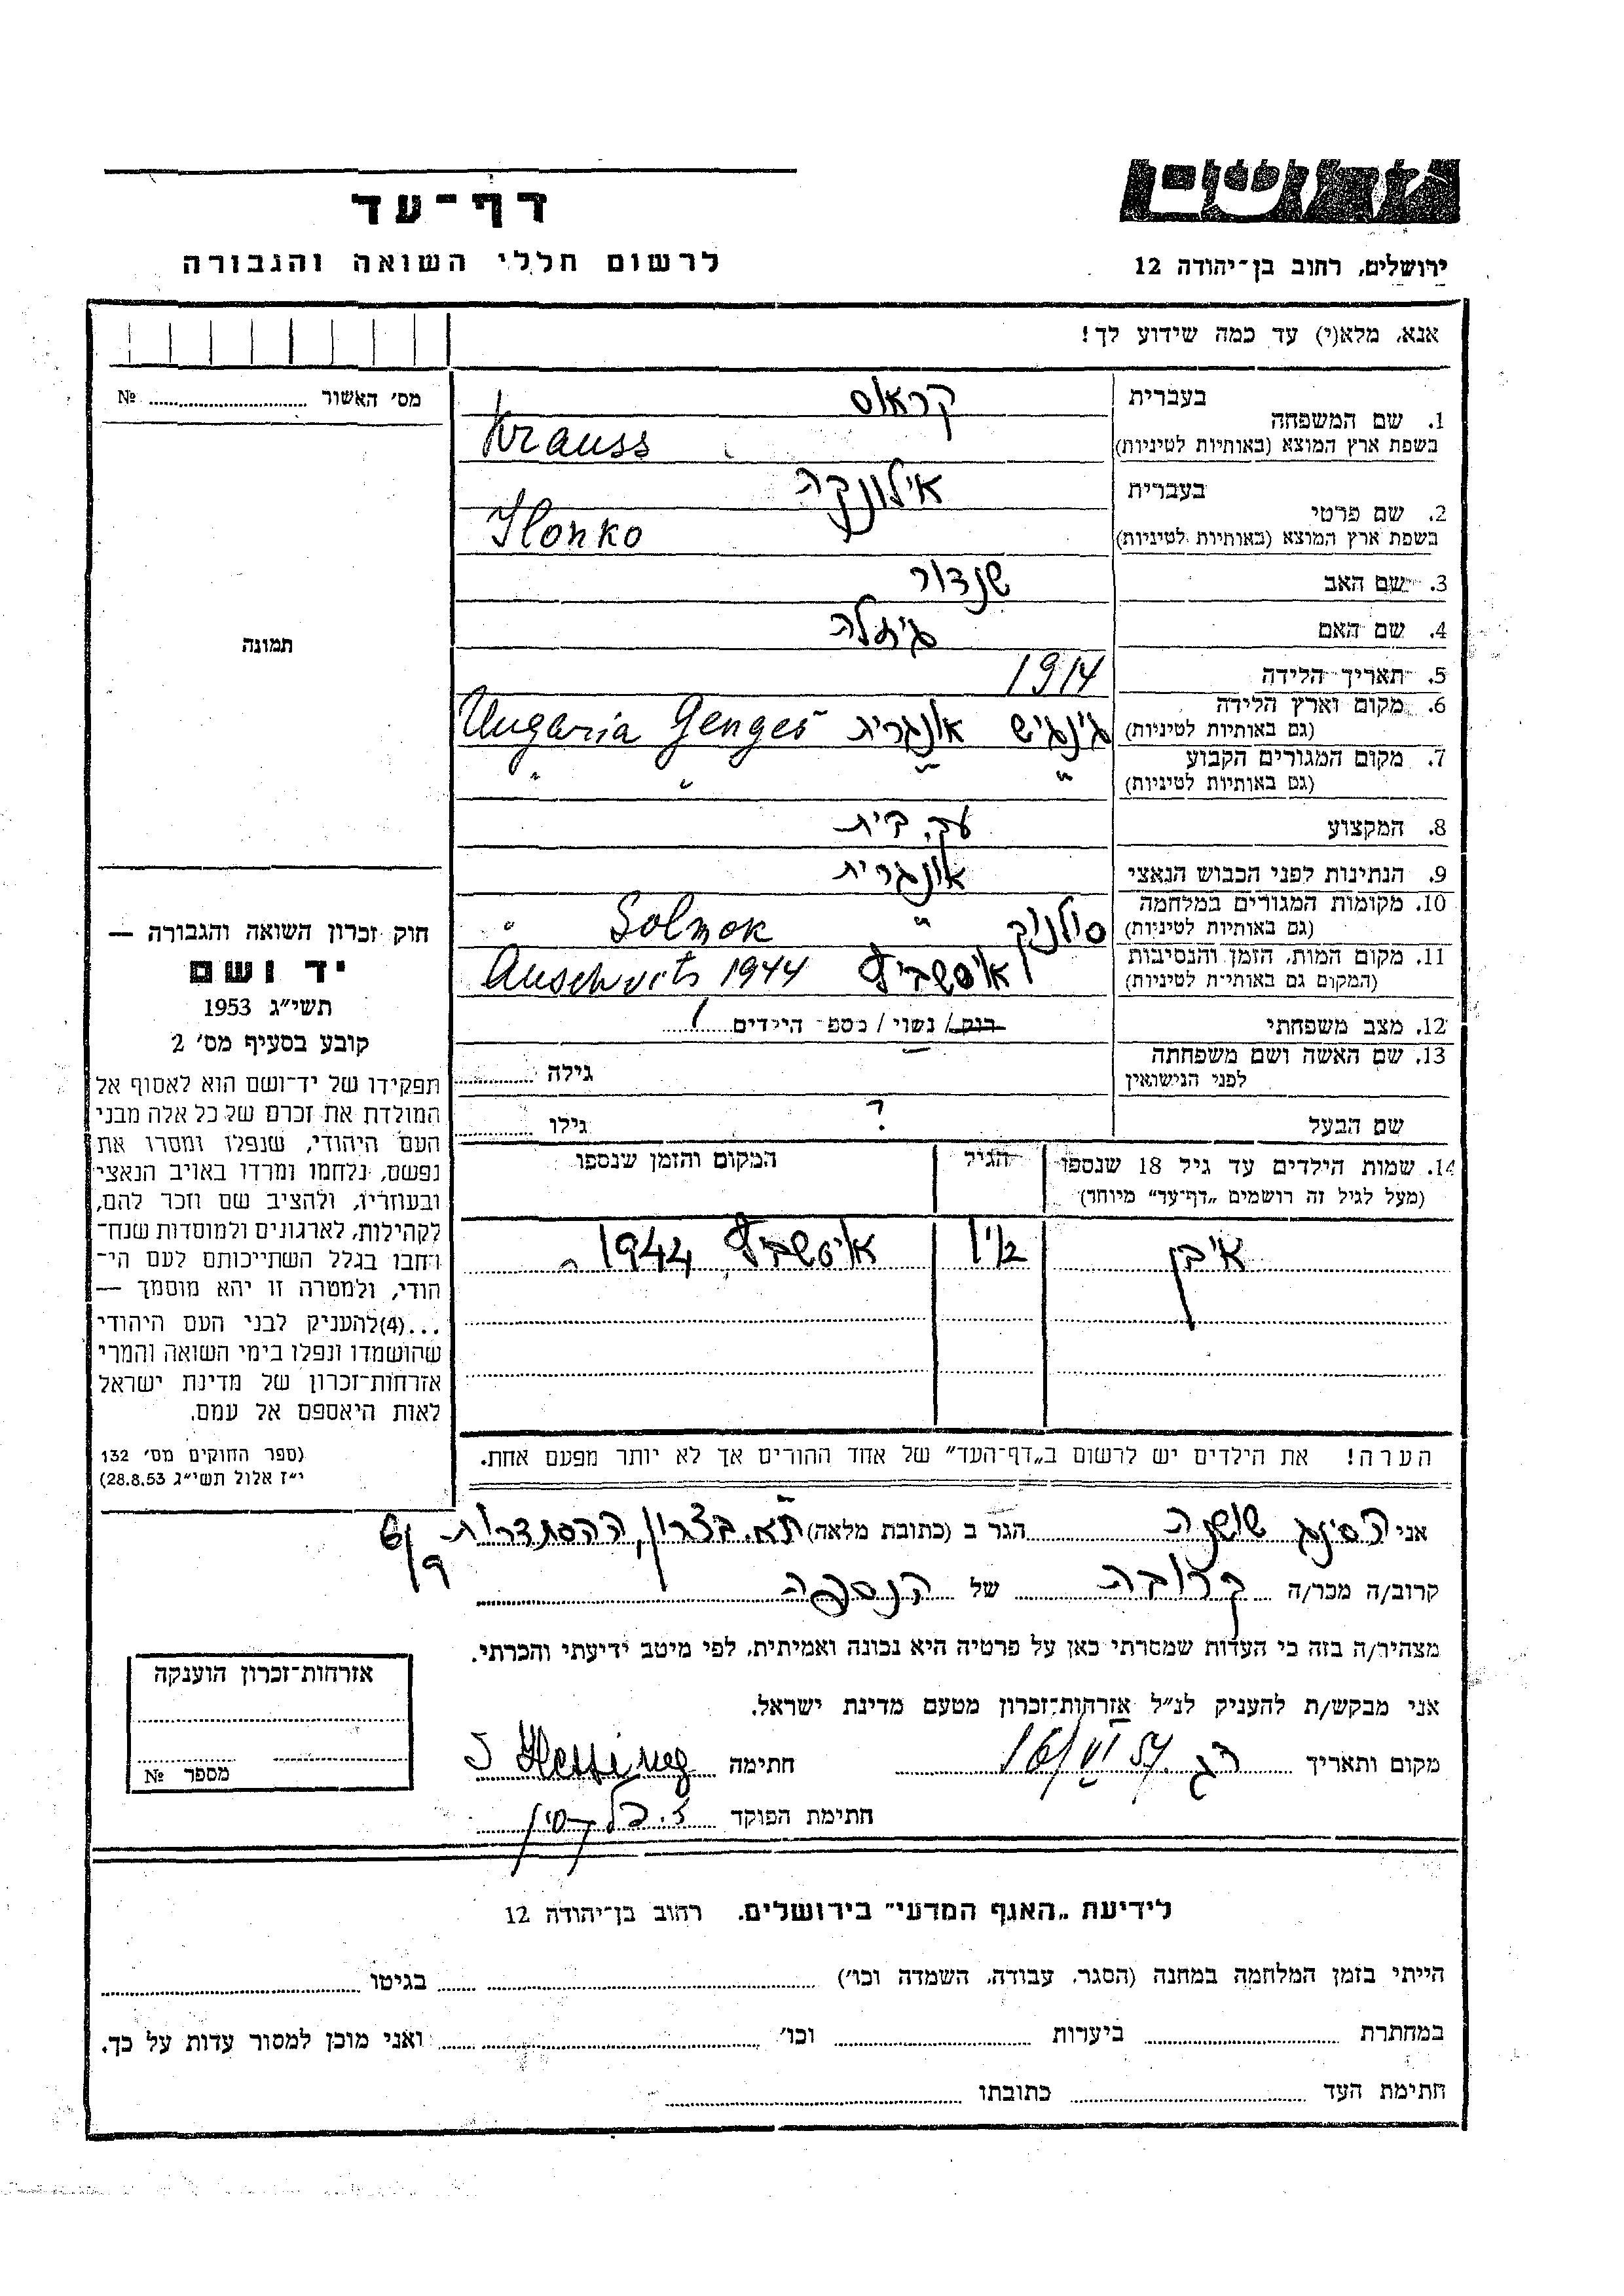 יד ושם
דף־עד
ירושלים, רחוב בן־יהודה 12
לרשום חללי השואה והגבורה
אנא, מלא(י) עד כמה שידוע לך!
מס׳ האשור ........ №
תמונה
חוק זכרון השואה והגבורה —
יד ושם
תשי״ג 1953
קובע בסעיף מס׳ 2
תפקידו של יד־ושם הוא לאסוף אל
המולדת את זכרם של כל אלה מבני
העם היהודי, שנפלו ומסרו את
נפשם, נלחמו ומרדו באויב הנאצי
ובעוזריו, ולהציב שם וזכר להם,
לקהילות, לארגונים ולמוסדות שנח־
רחבו בגלל השתייכותם לעם הי־
הודי, ולמטרה זו יהא מוסמך —
...(4)להעניק לבני העם היהודי
שהושמדו ונפלו בימי השואה והמרי
אזרחות־זכרון של מדינת ישראל
לאות היאספם אל עמם.
(ספר החוקים מס׳ 132
י״ז אלול תשי״ג 28.8.53)
בעברית קראוס
1. שם המשפחה
בשפת ארץ המוצא (באותיות לטיניות) Krauss
בעברית אילונקה
2. שם פרטי
בשפת ארץ המוצא (באותיות לטיניות) Ilonko
3. שם האב שנדור
4. שם האם
5. תאריך הלידה 1914
6. מקום וארץ הלידה
(גם באותיות לטיניות) גינגיש אונגרית Ungaria Genges
7. מקום המגורים הקבוע
(גם באותיות לטיניות) " " " "
8. המקצוע עק. בית
9. הנתינות לפני הכבוש הנאצי אונגרית
10. מקומות המגורים במלחמה
(גם באותיות לטיניות) סולנוק " Solnok "
11. מקום המות, הזמן והנסיבות
(המקום גם באותיות לטיניות) אוסשביץ Auschvits 1944
12. מצב משפחתי רווק/ נשוי/ מספר הילדים 1
13. שם האשה ושם משפחתה
לפני הנישואין גילה
שם הבעל ? גילו
14. שמות הילדים עד גיל 18 שנספו הגיל המקום והזמן שנספו
(מעל לגיל זה רושמים „דף־עד״ מיוחד)
אוסשביץ 1944
הערה! את הילדים יש לרשום ב„דף־העד״ של אחד ההורים אך לא יותר מפעם אחת.
אני הסינג שושנה הגר ב (כתובת מלאה) ת"א. בצרון, ההסתדרות
6/9
קרוב/ה מכר/ה קרובה של הנספה
מצהיר/ה בזה כי העדות שמסרתי כאן על פרטיה היא נכונה ואמיתית, לפי מיטב ידיעתי והכרתי.
אני מבקש/ת להעניק לנ״ל אזרחות־זכרון מטעם מדינת ישראל.
מקום ותאריך רג 16/VI 57 חתימה S Hessing
חתימת הפוקד
אזרחות־זכרון הוענקה
מספר №
לידיעת „האגף המדעי״ בירושלים. רחוב בן־יהודה 12
הייתי בזמן המלחמה במחנה (הסגר, עבודה, השמדה וכו׳) בגיטו
במחתרת ביערות וכו׳ ואני מוכן למסור עדות על כך.
חתימת העד כתובתו